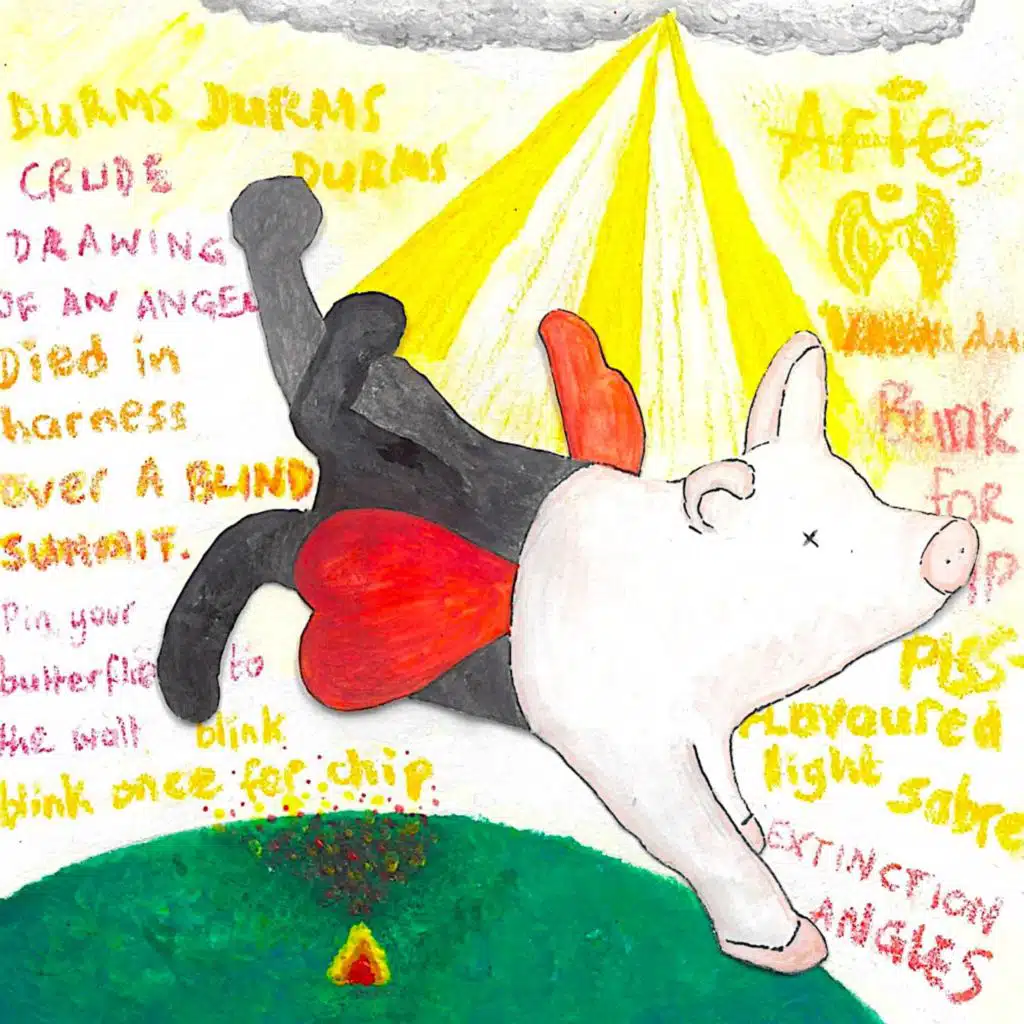 DURMS DURMS
DURMS
CRUDE
DRAWING
OF AN ANGEL
Died in
harness
over A BLIND
SUMMIT.
Pin your
butterflie to
the wall
blink
blink once for chip
Aries
Blink
for
IP
PISS-
FLavoured
light
sabre
EXTINCTION
ANGLES